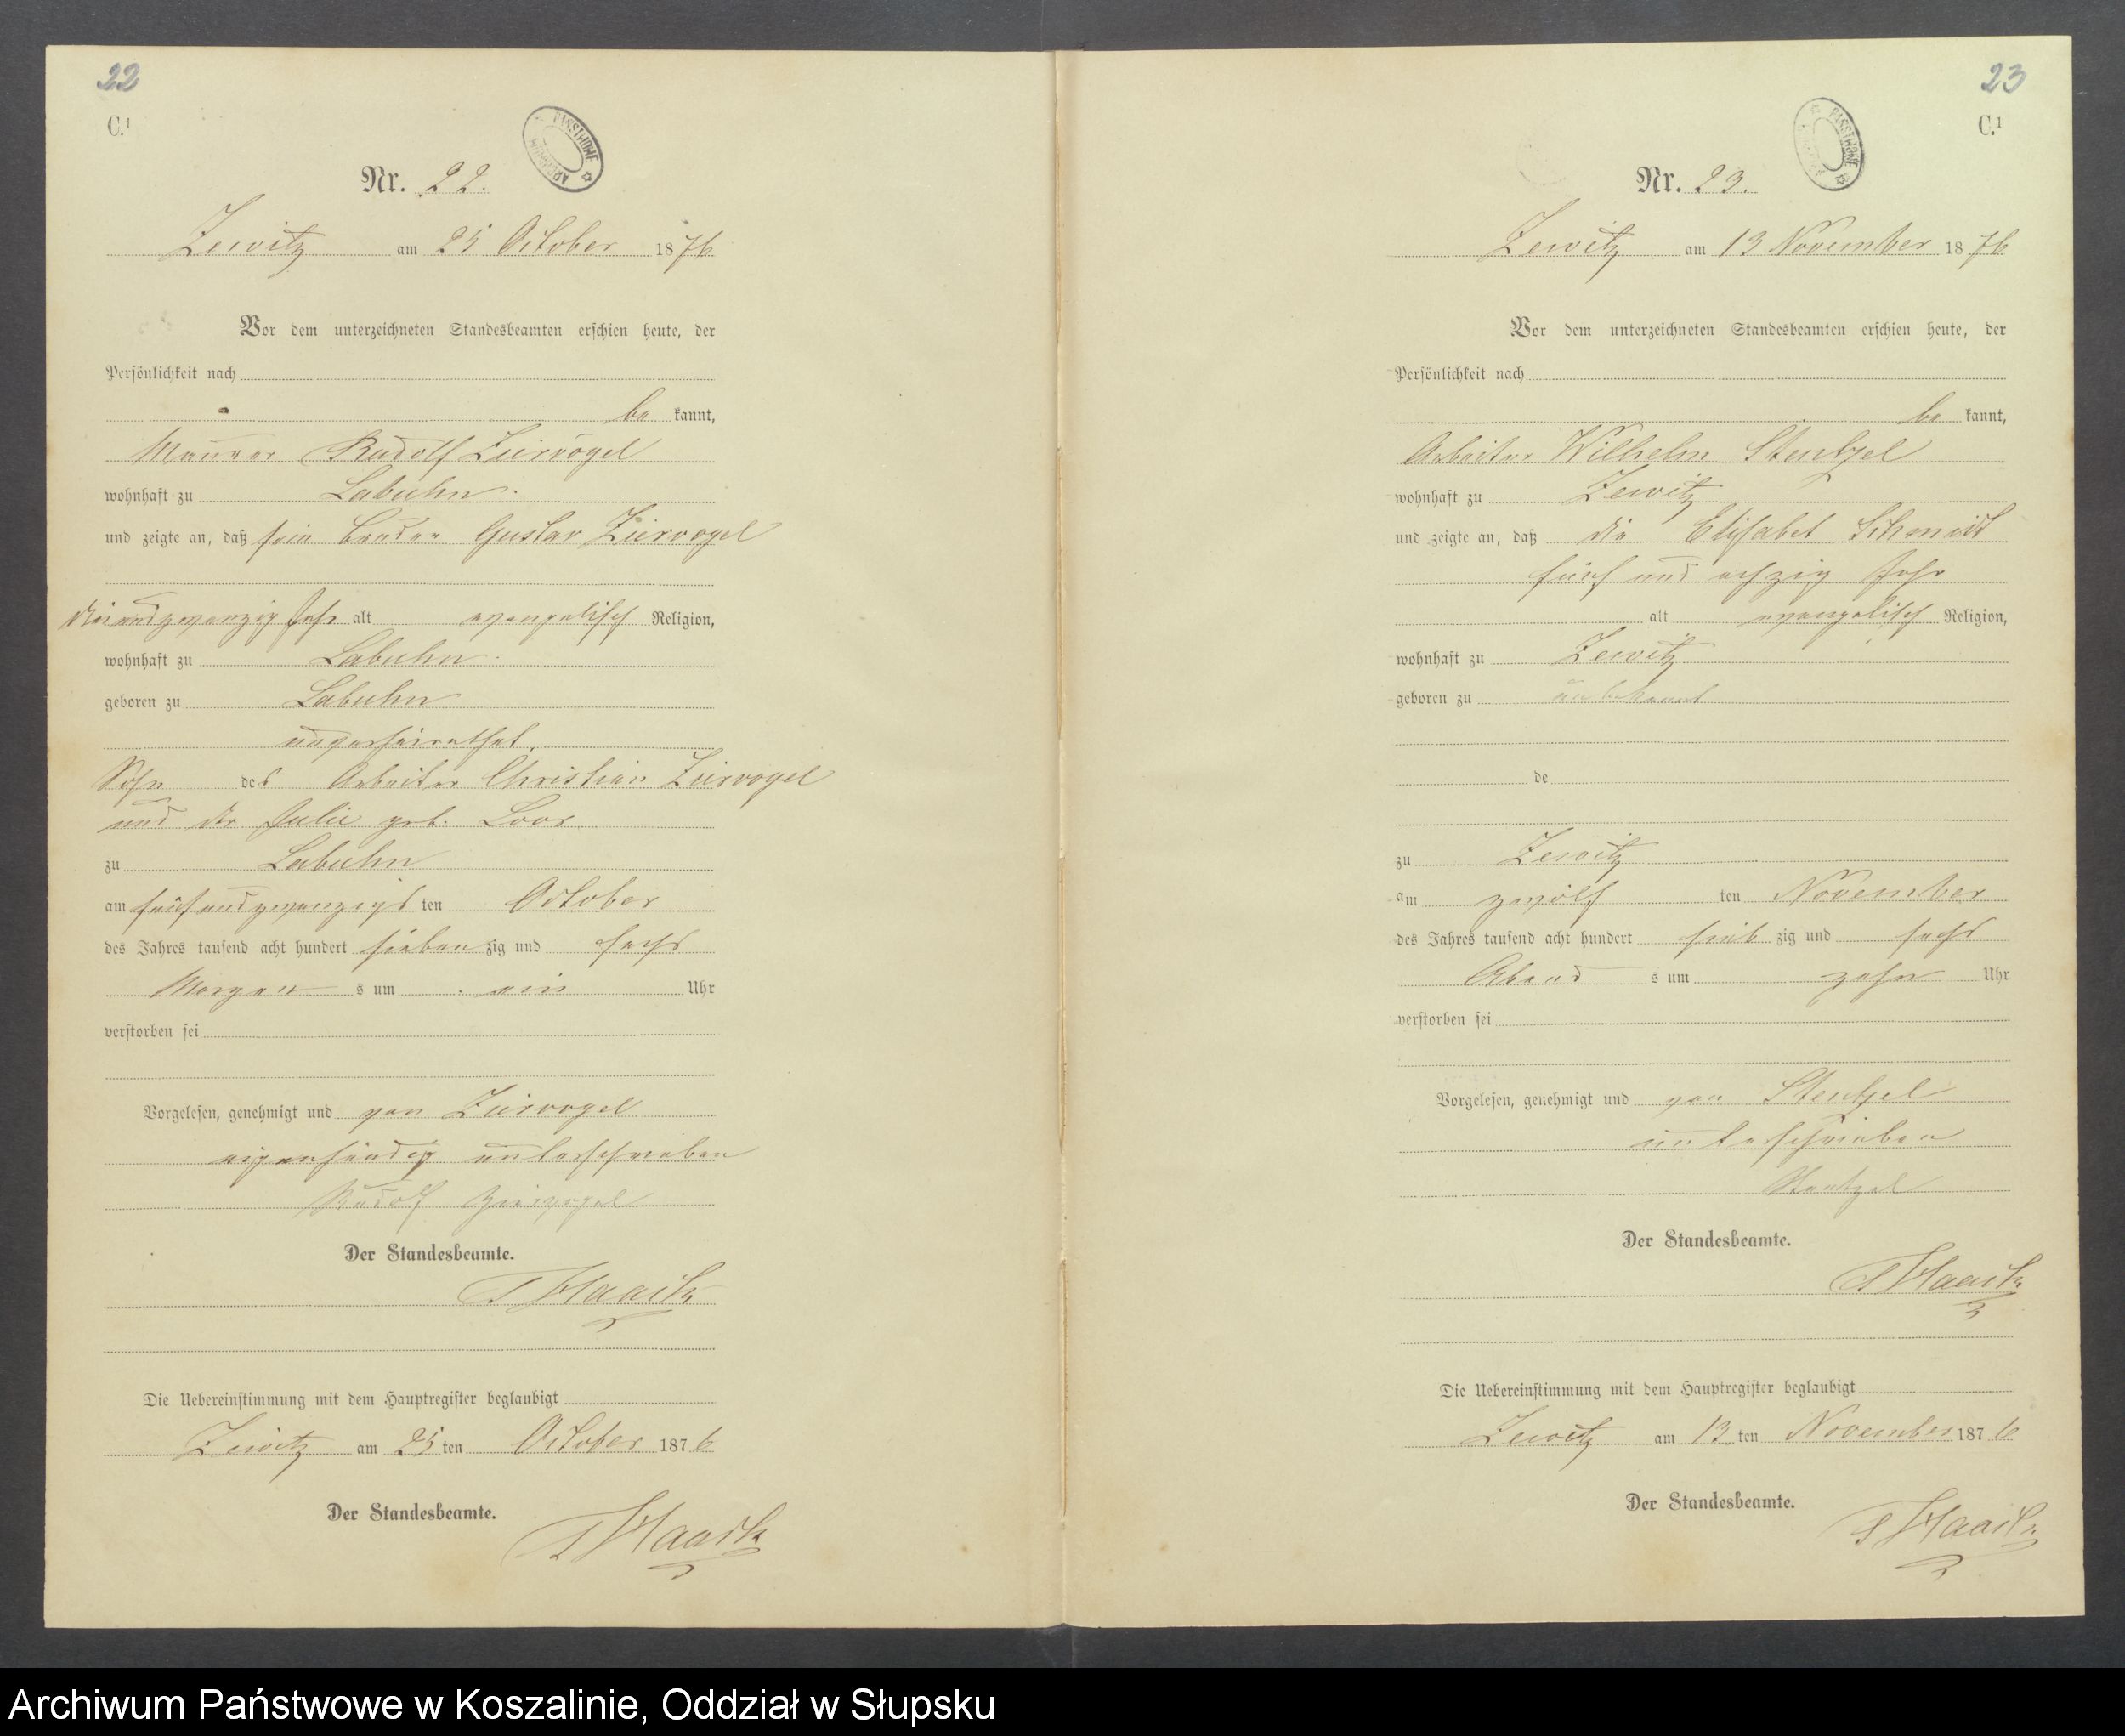 22
C.¹
ARCHIWUM PAŃSTWOWE
Nr. 22.
Zewitz am 25 October 1876
Vor dem unterzeichneten Standesbeamten erschien heute, der
Persönlichkeit nach
be kannt,
Maurer Rudolf Ziervogel
wohnhaft zu Labuhn.
und zeigte an, daß sein Bruder Gustav Ziervogel
drei und zwanzig Jahr alt evangelisch Religion,
wohnhaft zu Labuhn.
geboren zu Labuhn
unverheirathet.
Sohn des Arbeiter Christian Ziervogel
und der Julie geb. Loos
zu Labuhn
am fünf und zwanzigs ten October
des Jahres tausend acht hundert sieben zig und sechs
Morgen s um ein Uhr
verstorben sei
Vorgelesen, genehmigt und von Ziervogel
eigenhändig unterschrieben
Rudolf Ziervogel
Der Standesbeamte.
Haack
Die Uebereinstimmung mit dem Hauptregister beglaubigt
Zewitz am 25 ten October 1876
Der Standesbeamte.
Haack
23
C.¹
ARCHIWUM PAŃSTWOWE
Nr. 23.
Zewitz am 13 November 1876
Vor dem unterzeichneten Standesbeamten erschien heute, der
Persönlichkeit nach
be kannt,
Arbeiter Wilhelm Stentzel
wohnhaft zu Zewitz
und zeigte an, daß die Elisabet Schmidt
fünf und achzig Jahr
alt evangelisch Religion,
wohnhaft zu Zewitz
geboren zu unbekannt
de
zu Zewitz
am zwölf ten November
des Jahres tausend acht hundert sieb zig und sechs
Abend s um zehn Uhr
verstorben sei
Vorgelesen, genehmigt und von Stentzel
unterschrieben
Stentzel
Der Standesbeamte.
Haack
Die Uebereinstimmung mit dem Hauptregister beglaubigt
Zewitz am 13 ten November 1876
Der Standesbeamte.
Haack
Archiwum Państwowe w Koszalinie, Oddział w Słupsku